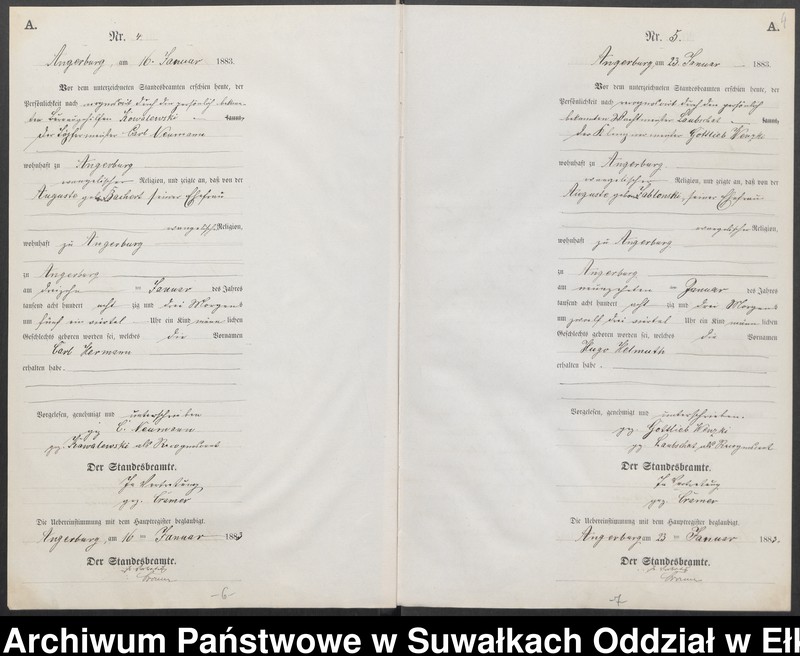 A.
Nr. 4.
Angerburg, am 16. Januar 1883.
Vor dem unterzeichneten Standesbeamten erschien heute, der
Persönlichkeit nach
Kowalewski
der Töpfermeister Carl Neumann
wohnhaft zu Angerburg
evangelischer Religion, und zeigte an, daß von der
Auguste geb. seiner Ehefrau
evangelischer Religion,
wohnhaft zu Angerburg
zu Angerburg
am Januar des Jahres
tausend acht hundert acht zig und drei Morgens
um fünf ein viertel Uhr ein Kind männlichen
Geschlechts geboren worden sei, welches die Vornamen
Carl Hermann
erhalten habe.
Vorgelesen, genehmigt und unterschrieben
gez. C. Neumann
gez. Kowalewski als
Der Standesbeamte.
In Vertretung
gez. Cremer
Die Uebereinstimmung mit dem Hauptregister beglaubigt.
Angerburg, am 16 ten Januar 1883
Der Standesbeamte.
-6-
A.
4
Nr. 5.
Angerburg am 23. Januar 1883.
Vor dem unterzeichneten Standesbeamten erschien heute, der
Persönlichkeit nach durch den persönlich
bekannten Wachtmeister
der Klempnermeister Gottlieb
wohnhaft zu Angerburg
evangelischer Religion, und zeigte an, daß von der
Auguste geborenen Jablonski, seiner Ehefrau
evangelischer Religion,
wohnhaft zu Angerburg
zu Angerburg
am neunzehnten Januar des Jahres
tausend acht hundert acht zig und drei Morgens
um zwölf drei viertel Uhr ein Kind männlichen
Geschlechts geboren worden sei, welches die Vornamen
Hugo Helmuth
erhalten habe.
Vorgelesen, genehmigt und unterschrieben.
gez. Gottlieb
gez. als
Der Standesbeamte.
In Vertretung
gez. Cremer
Die Uebereinstimmung mit dem Hauptregister beglaubigt.
Angerburg am 23 ten Januar 1883.
Der Standesbeamte.
-7-
Archiwum Państwowe w Suwałkach Oddział w Ełk